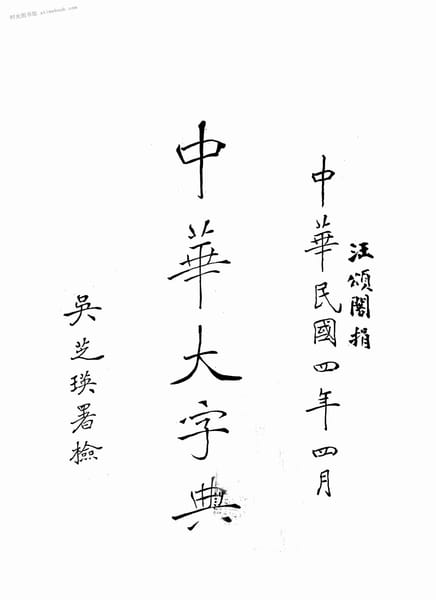 时光图书馆 atimebook.com
汪頌閣捐
中華民國四年四月
中華大字典
吳芝瑛署檢